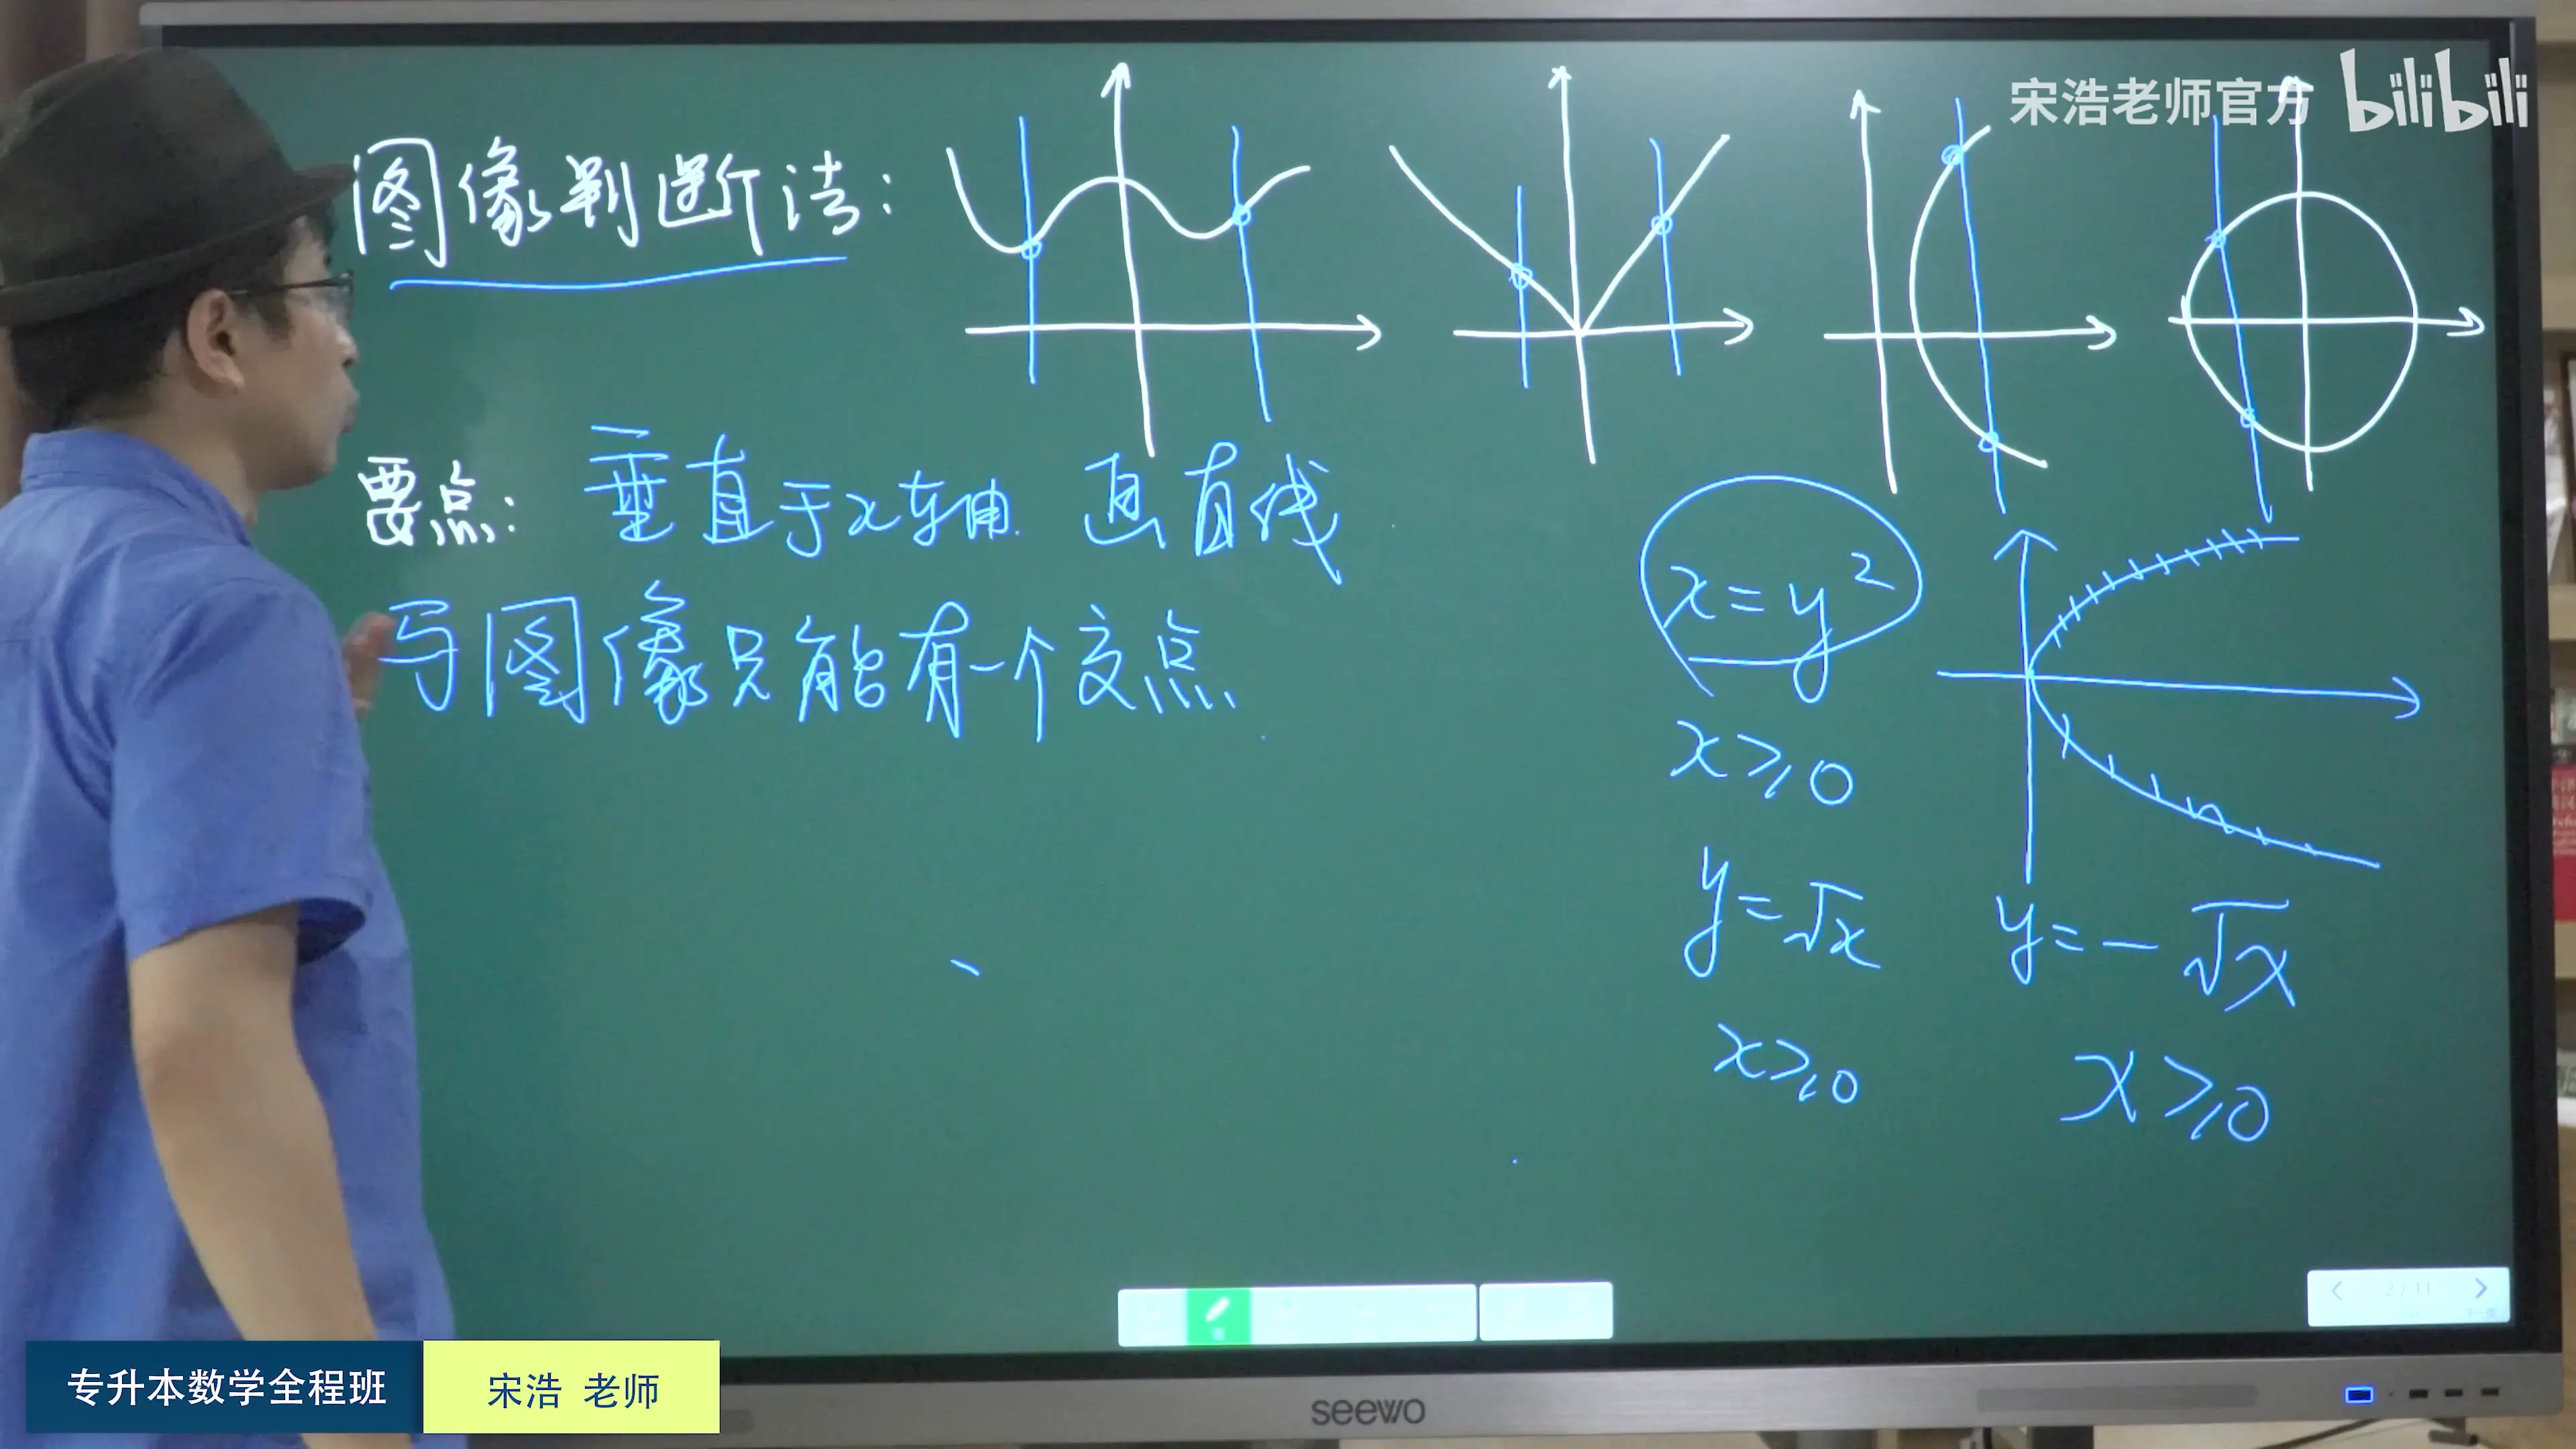 宋浩老师官方 bilibili
图像判断法:
要点: 垂直于x轴 画直线
与图像只能有一个交点
x=y²
x≥0
y=√x y=-√x
x≥0 x≥0
2/11
专升本数学全程班 宋浩 老师
seewo